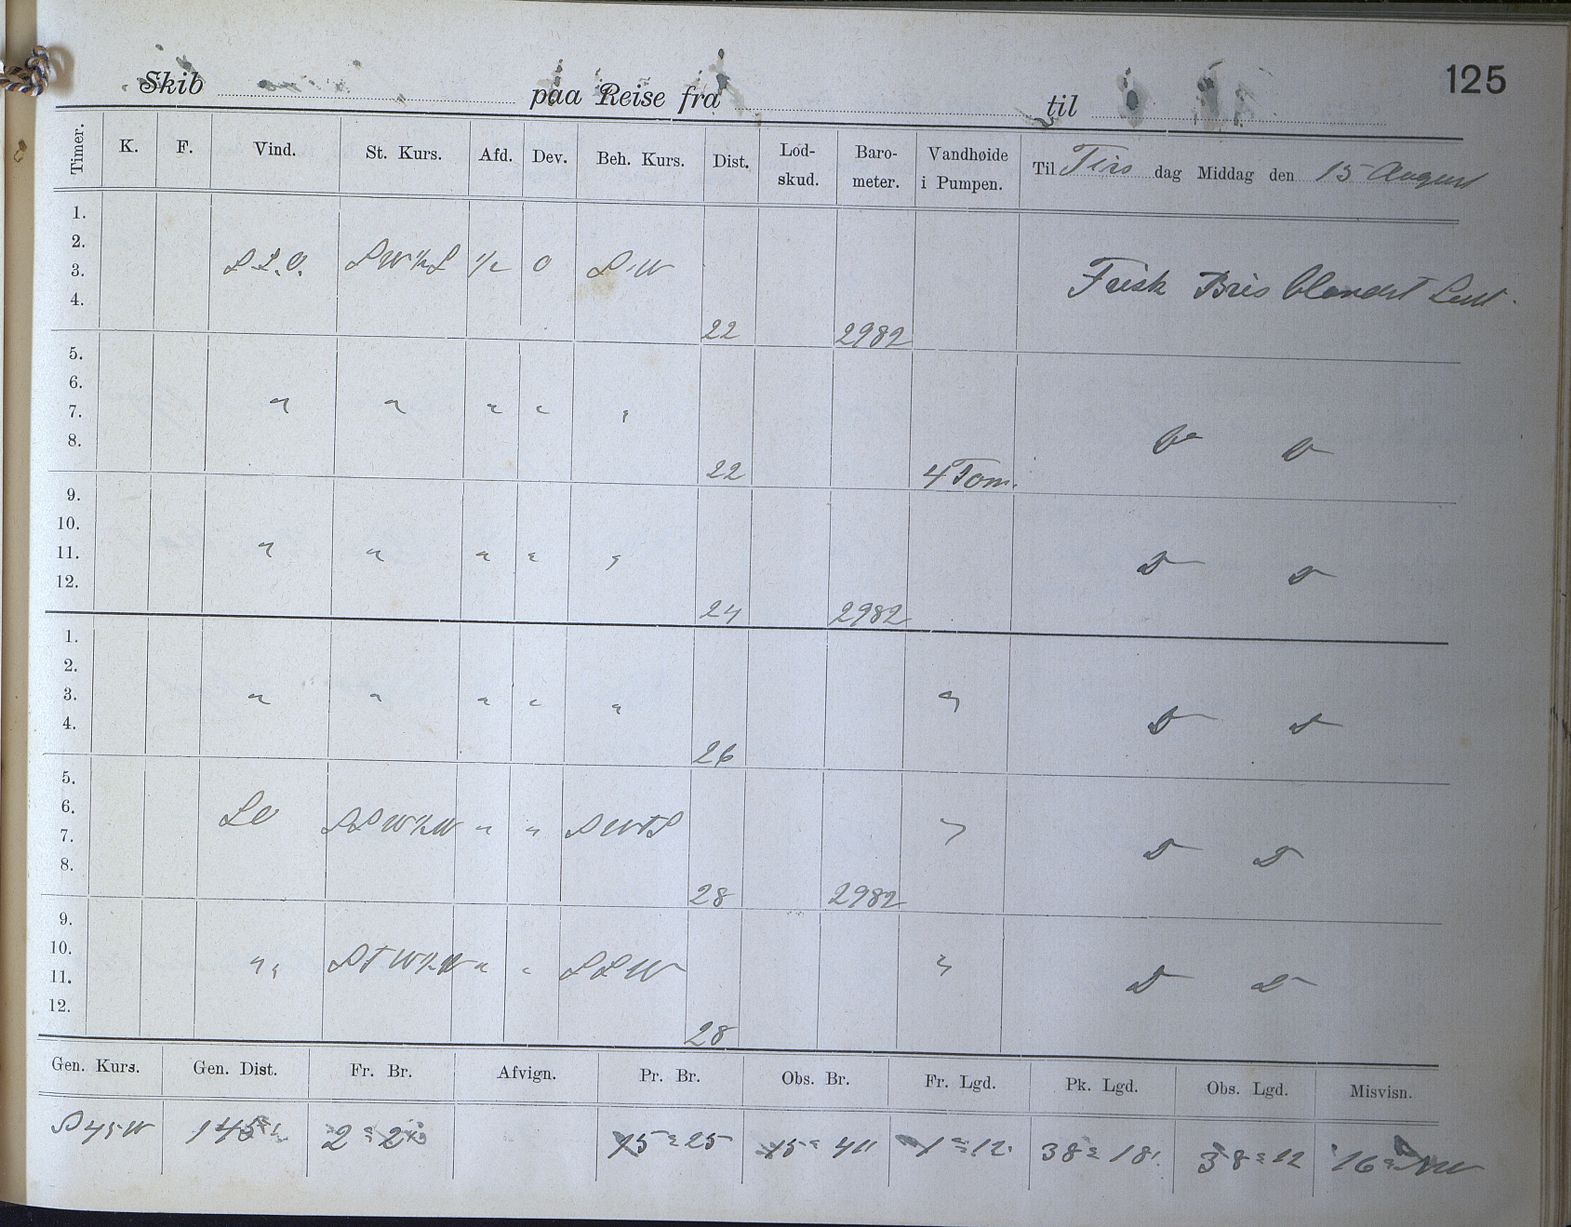 125
Skib paa Reise fra til
Timer. K. F. Vind. St. Kurs. Afd. Dev. Beh. Kurs. Dist. Lod-skud. Baro-meter. Vandhøide i Pumpen. Til Tirs dag Middag den 15 August
1.
2.
3. S.S.O. ½ 0 S.W Frisk Bris blandet
4. 22 2982
5.
6.
7. " " " " "
8. 22 4 Tom. Do Do
9.
10.
11. " " " " " Do Do
12. 24 2982
1.
2.
3. " " " " " "
4. 26 Do Do
5.
6. SO
7. " " " Do Do
8. 28 2982
9.
10. " " " " SSW "
11. Do Do
12. 28
Gen. Kurs. Gen. Dist. Fr. Br. Afvign. Pr. Br. Obs. Br. Fr. Lgd. Pk. Lgd. Obs. Lgd. Misvisn.
S 45 W 15 25 15 1 12 38 18 38 12 16